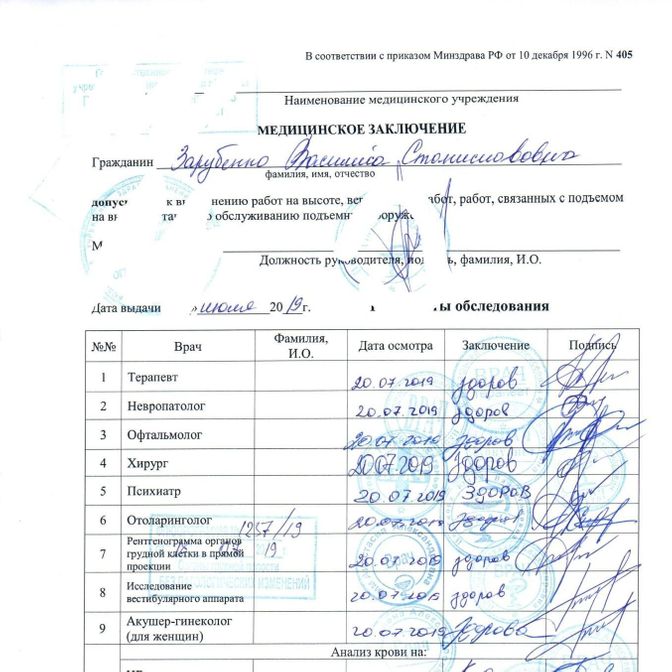 В соответствии с приказом Минздрава РФ от 10 декабря 1996 г. N 405
Наименование медицинского учреждения
МЕДИЦИНСКОЕ ЗАКЛЮЧЕНИЕ
Гражданин Зарубенко Станиславовича
фамилия, имя, отчество
допус к в нению работ на высоте, ве бот, работ, связанных с подъемом
на в та о обслуживанию подъемн оруж
М
Должность руководителя, под ь, фамилия, И.О.
Дата выдачи » июля 2019г. ты обследования
№№ Врач Фамилия, И.О. Дата осмотра Заключение Подпись
1 Терапевт 20.07.2019 здоров
2 Невропатолог 20.07.2019 здоров
3 Офтальмолог 20.07.2019 здоров
4 Хирург 20.07.2019 здоров
5 Психиатр 20.07.2019 здоров
6 Отоларинголог 20.07.2019 здоров
1257/19
Рентгенограмма органов
7 грудной клетки в прямой 19 20.07.2019 здоров
проекции
БЕЗ ПАТОЛОГИЧЕСКИХ ИЗМЕНЕНИЙ
8 Исследование
вестибулярного аппарата 20.07.2019 здоров
9 Акушер-гинеколог
(для женщин) 20.07.2019 здорова
Анализ крови на: